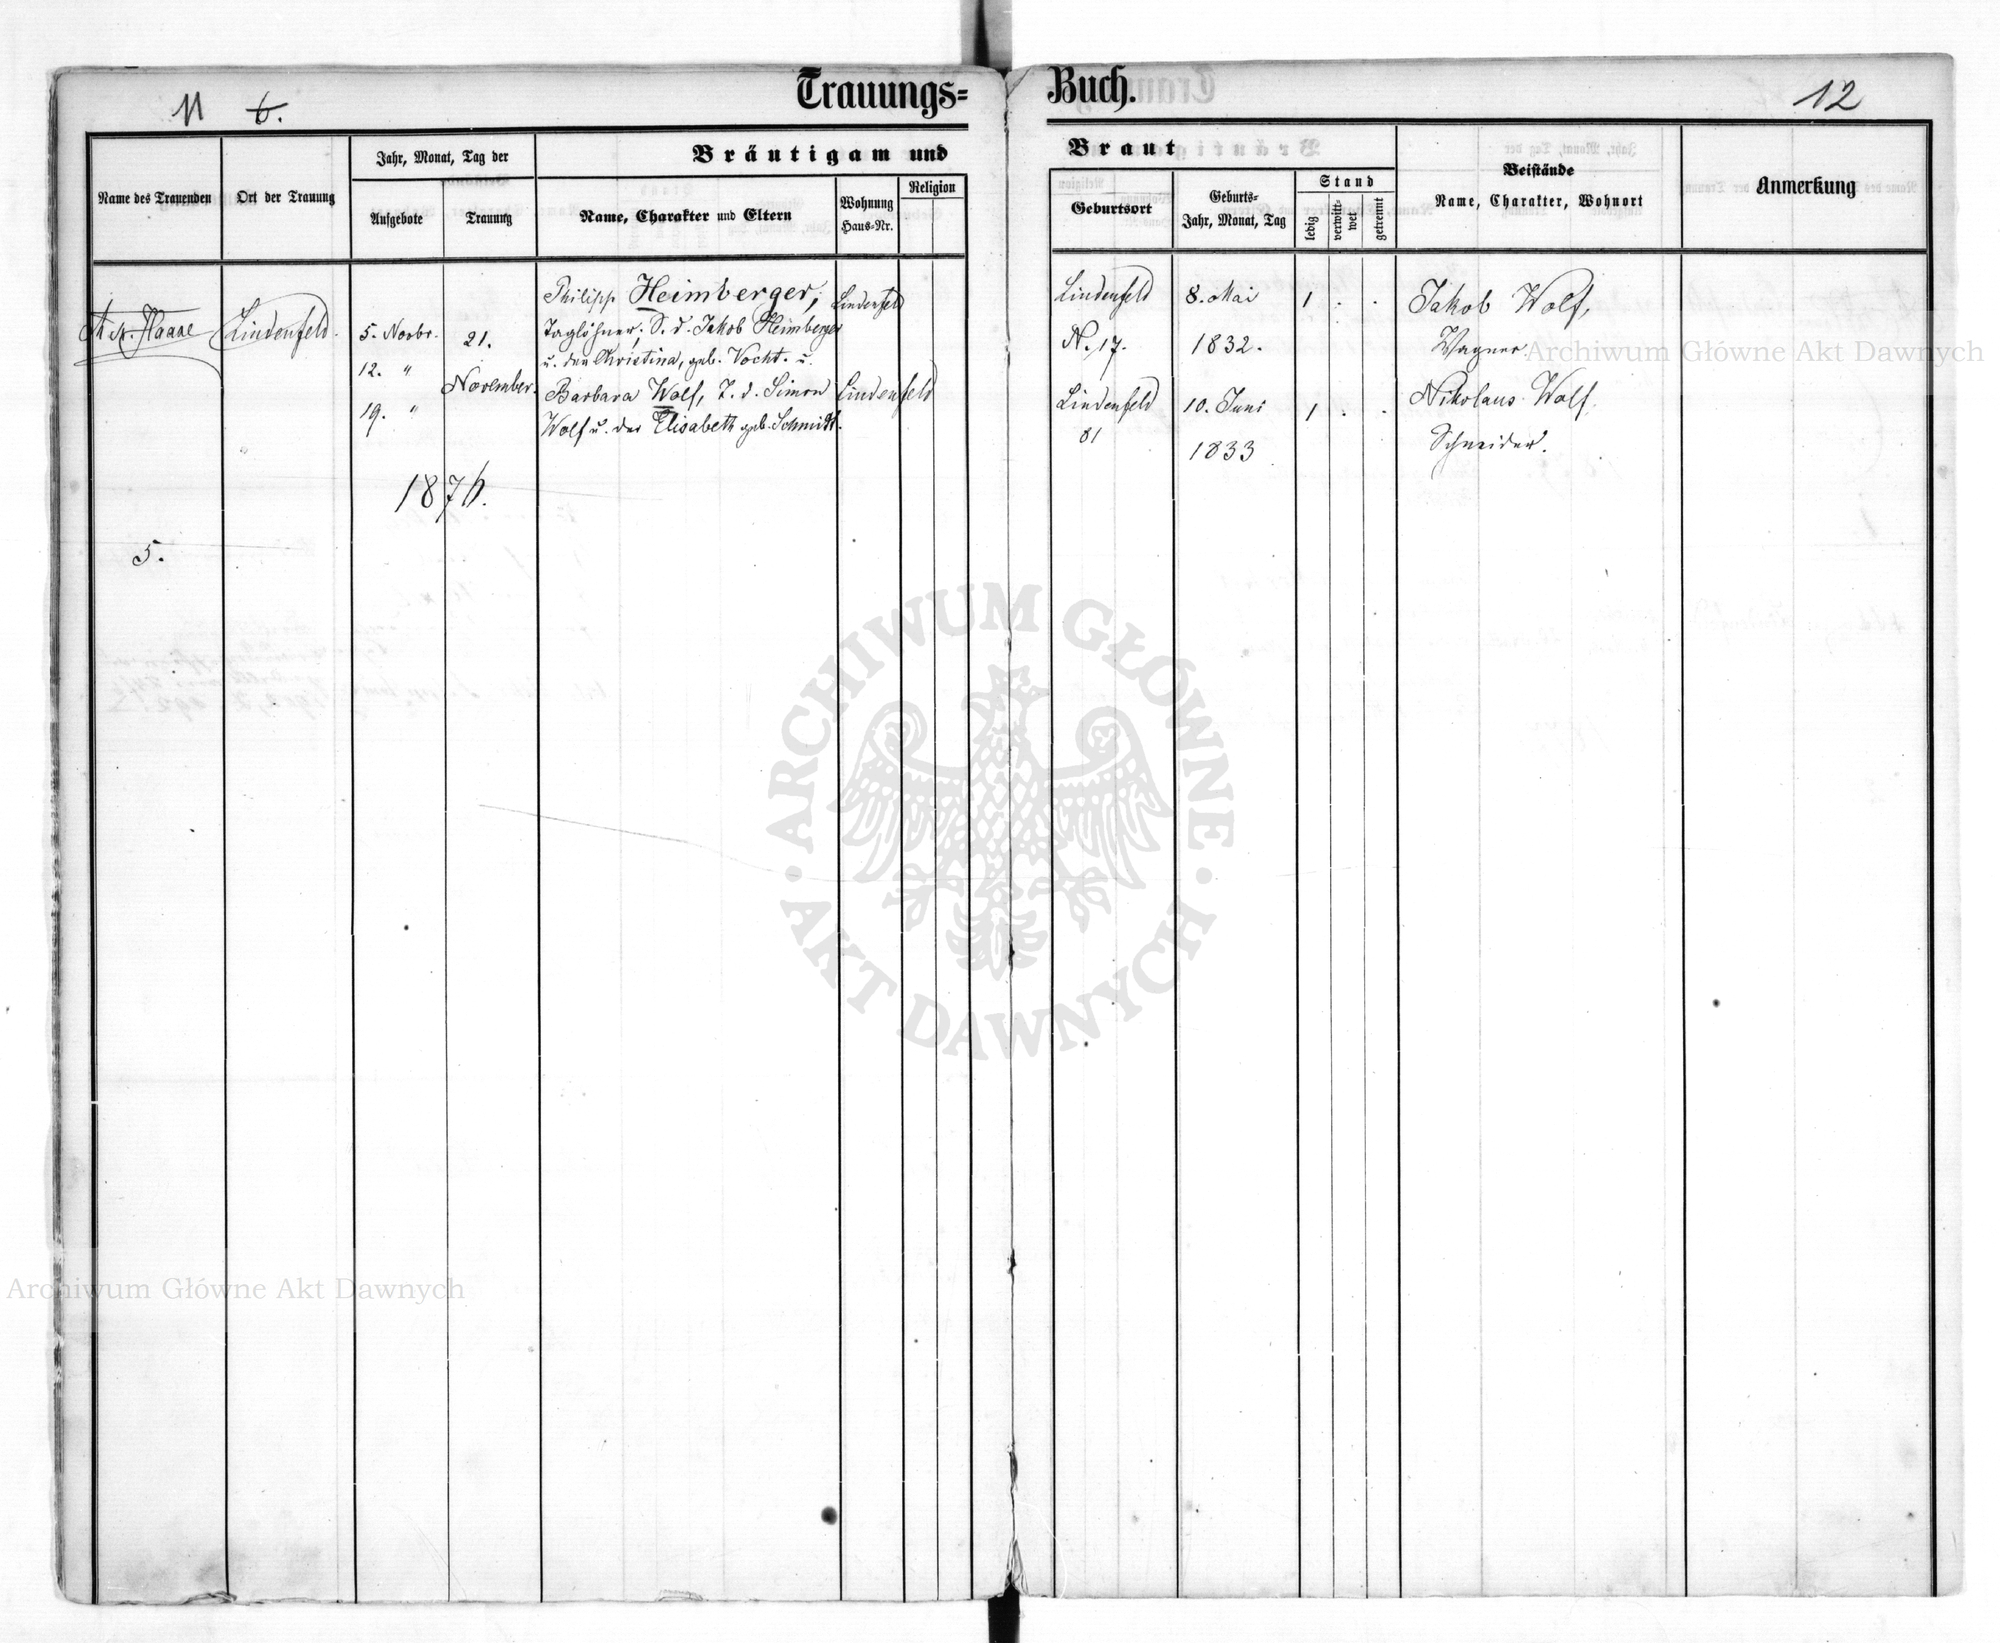 Trauungs=
Buch.
11 6.
12
Name des Trauenden
Ort der Trauung
Jahr, Monat, Tag der
Aufgebote
Trauung
Bräutigam und
Name, Charakter und Eltern
Wohnung
Haus=Nr.
Religion
Braut
Geburtsort
Geburts=
Jahr, Monat, Tag
Stand
ledig
verwitt-
wet
getrennt
Beistände
Name, Charakter, Wohnort
Anmerkung
Haase
Lindenfeld.
5. Novbr.
12. "
19. "
21.
November.
Philipp Heimberger,
Taglöhner, S. d. Jakob Heimberger
u. der Christina, geb. Vocht. u.
Barbara Wolf, T. d. Simon
Wolf u. der Elisabeth geb. Schmidt.
Lindenfeld
Lindenfeld
Lindenfeld
N. 17.
Lindenfeld
81
8. Mai
1832.
10. Juni
1833
1 . .
1 . .
Jakob Wolf,
Wagner.
Nikolaus Wolf.
Schneider.
1876.
5.
ARCHIWUM GŁÓWNE
· AKT DAWNYCH ·
Archiwum Główne Akt Dawnych
Archiwum Główne Akt Dawnych